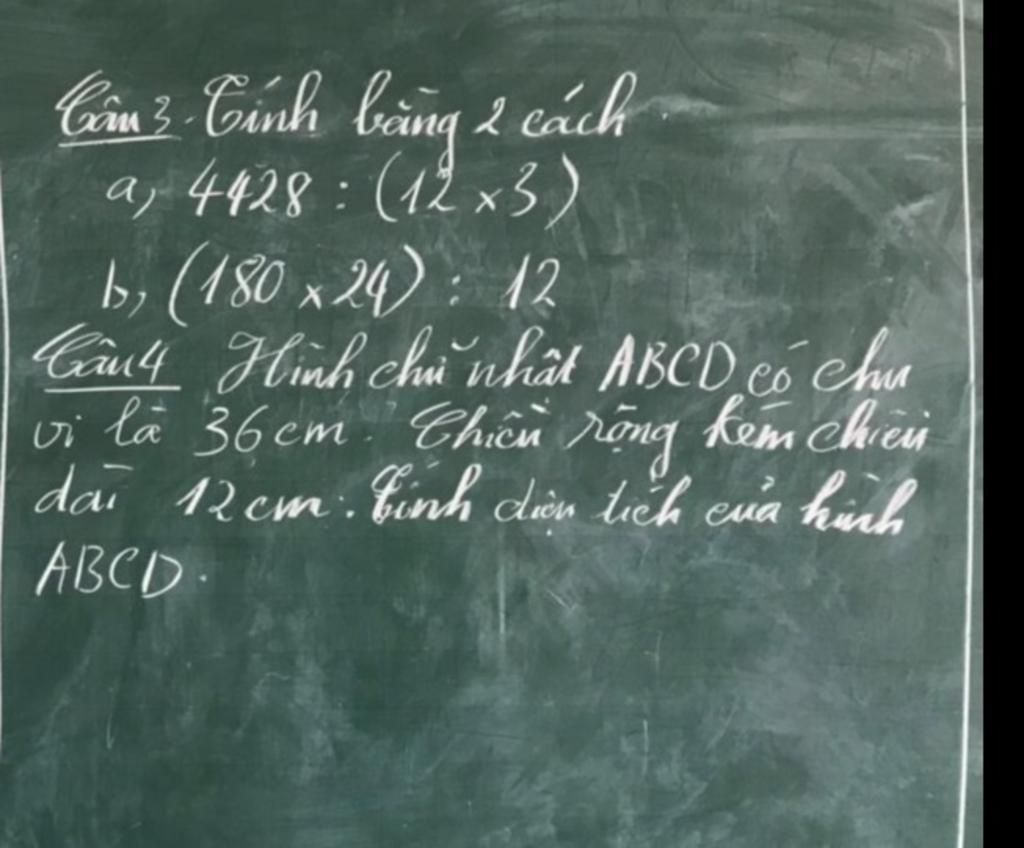 Câu 3. Tính bằng 2 cách.
a, 4428 : (12 x 3)
b, (180 x 24) : 12
Câu 4 Hình chữ nhật ABCD có chu
vi là 36 cm. Chiều rộng kém chiều
dài 12 cm. Tính diện tích của hình
ABCD.